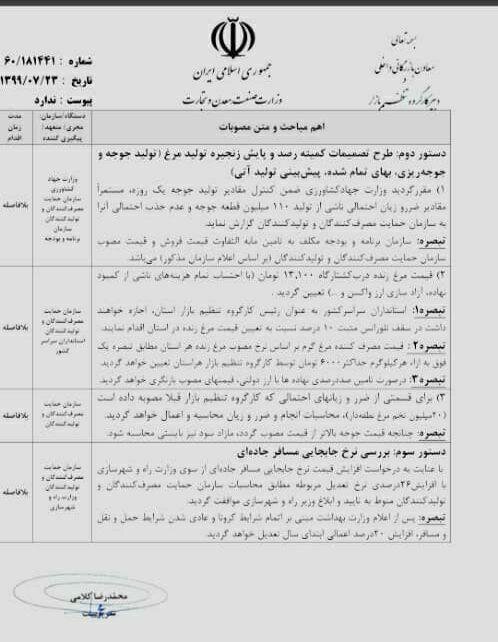 بسمه تعالی
معاون بازرگانی داخلی
و
دبیر کارگروه تنظیم بازار
جمهوری اسلامی ایران
وزارت صنعت، معدن و تجارت
شماره : ۶۰/۱۸۱۴۴۱
تاریخ : ۱۳۹۹/۰۷/۲۳
پیوست : ندارد
اهم مباحث و متن مصوبات
دستگاه/سازمان:
مجری/متعهد/
پیگیری کننده
مدت
زمان
اقدام
دستور دوم: طرح تصمیمات کمیته رصد و پایش زنجیره تولید مرغ (تولید جوجه و
جوجه‌ریزی، بهای تمام شده، پیش‌بینی تولید آتی)
۱) مقرر گردید وزارت جهادکشاورزی ضمن کنترل مقادیر تولید جوجه یک روزه، مستمراً
مقادیر ضررو زیان احتمالی ناشی از تولید ۱۱۰ میلیون قطعه جوجه و عدم جذب احتمالی آنرا
به سازمان حمایت مصرف‌کنندگان و تولیدکنندگان گزارش نماید.
تبصره: سازمان برنامه و بودجه مکلف به تامین مابه التفاوت قیمت فروش و قیمت مصوب
سازمان حمایت مصرف‌کنندگان و تولیدکنندگان (بر اساس اعلام سازمان مذکور) می‌باشد.
وزارت جهاد
کشاورزی
سازمان حمایت
مصرف‌کنندگان و
تولیدکنندگان
سازمان
برنامه و بودجه
بلافاصله
۲) قیمت مرغ زنده درب‌کشتارگاه ۱۳,۱۰۰ تومان (با احتساب تمام هزینه‌های ناشی از کمبود
نهاده، آزاد سازی ارز واکسن و ..) تعیین گردید .
تبصره۱: استانداران سراسرکشور به عنوان رئیس کارگروه تنظیم بازار استان، اجازه خواهند
داشت در سقف تلورانس مثبت ۱۰ درصد نسبت به تعیین قیمت مرغ زنده در استان اقدام نمایند.
تبصره۲ : قیمت مصرف کننده مرغ گرم بر اساس نرخ مصوب مرغ زنده هر استان مطابق تبصره یک
فوق به ازاء هرکیلوگرم حداکثر۶۰۰۰ تومان توسط کارگروه تنظیم بازار هراستان تعیین خواهد گردید.
تبصره۳: درصورت تامین صددرصدی نهاده ها با ارز دولتی، قیمتهای مصوب بازنگری خواهد گردید.
سازمان حمایت
مصرف‌کنندگان و
تولیدکنندگان
استانداران سراسر
کشور
بلافاصله
۳) برای قسمتی از ضرر و زیانهای احتمالی که کارگروه تنظیم بازار قبلا مصوبه داده است
(۲۰میلیون تخم مرغ نطفه‌دار)، محاسبات انجام و ضرر و زیان محاسبه و اعمال خواهد گردید.
تبصره: چنانچه قیمت جوجه بالاتر از قیمت مصوب گردد، مازاد سود نیز بایستی محاسبه شود.
سازمان حمایت
مصرف‌کنندگان و
تولیدکنندگان
بلافاصله
دستور سوم: بررسی نرخ جابجایی مسافر جاده‌ای
با عنایت به درخواست افزایش قیمت نرخ جابجایی مسافر جاده‌ای از سوی وزارت راه و شهرسازی
با افزایش۲۶درصدی نرخ تعدیل مربوطه مطابق محاسبات سازمان حمایت مصرف‌کنندگان و
تولیدکنندگان منوط به تایید و ابلاغ وزیر راه و شهرسازی موافقت گردید.
تبصره: پس از اعلام وزارت بهداشت مبنی بر اتمام شرایط کرونا و عادی شدن شرایط حمل و نقل
و مسافر، افزایش ۲۰درصد اعمالی ابتدای سال تعدیل خواهد گردید.
سازمان حمایت
مصرف‌کنندگان و
تولیدکنندگان
وزارت راه و
شهرسازی
بلافاصله
محمدرضا کلامی